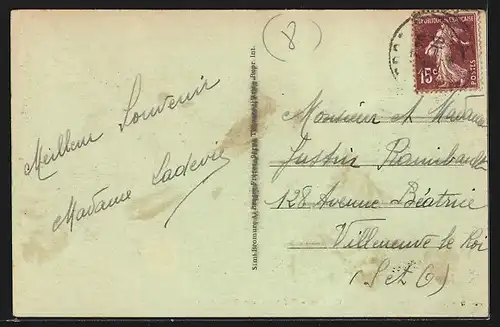 8
RÉPUBLIQUE FRANÇAISE
15c
POSTES
Meilleur Souvenir
Madame Ladevie
Monsieur et Madame
Justin Raimbault
128 Avenue Béatrice
Villeneuve le Roi
(S et O)